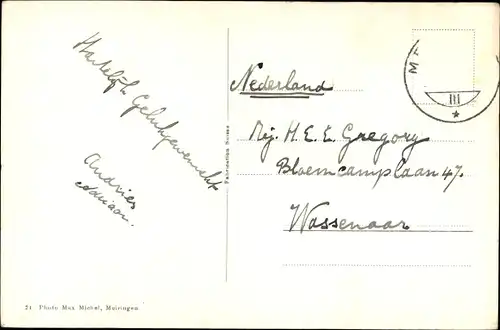 Hartelijk
Gelukgewenscht
Andries
Nederland
Mej. H. E. E. Gregory
Bloemcamplaan 47.
Wassenaar
Fabrication Suisse
M
III
21 Photo Max Michel, Meiringen